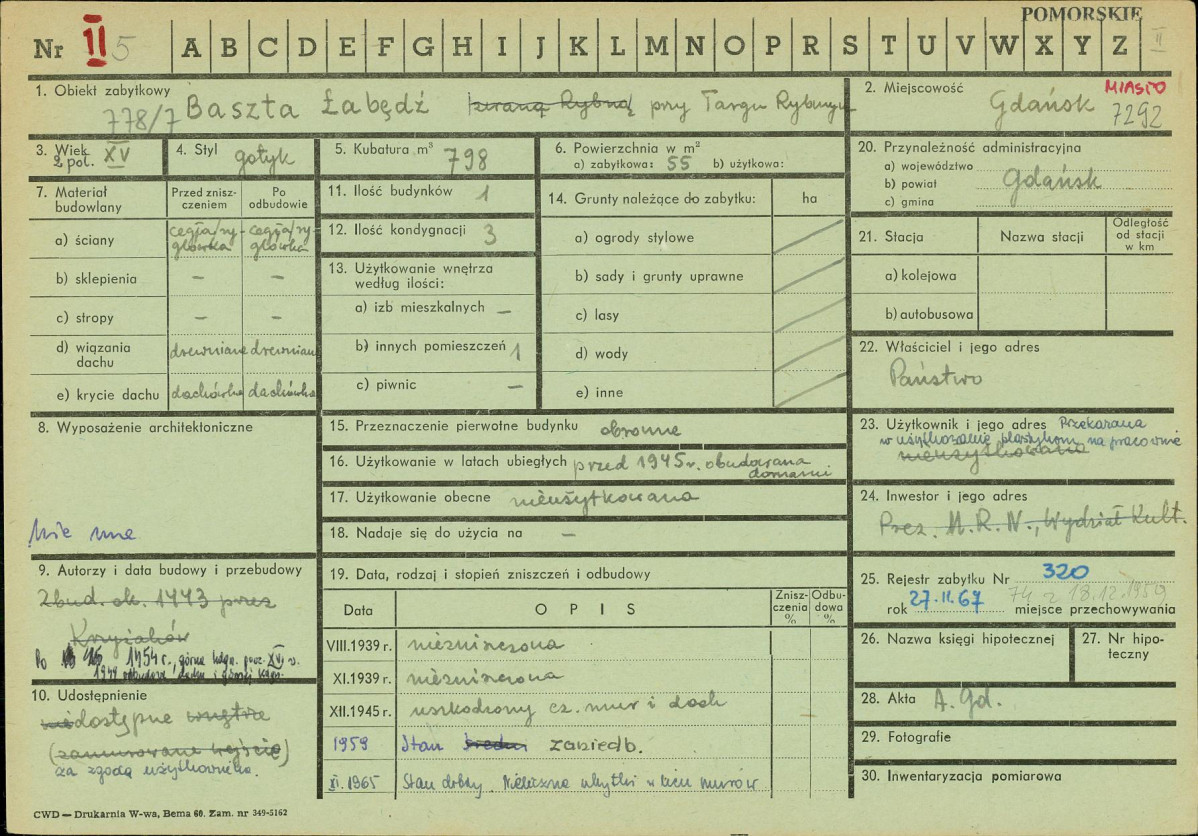 POMORSKIE
Nr II 5 A B C D E F G H I J K L M N O P R S T U V W X Y Z II
1. Obiekt zabytkowy
778/7 Baszta Łabędź zwaną Rybną przy Targu Rybnym
2. Miejscowość MIASTO
Gdańsk 7292
3. Wiek XV
2 poł.
4. Styl gotyk
5. Kubatura m³ 798
6. Powierzchnia w m²
a) zabytkowa: 55 b) użytkowa:
20. Przynależność administracyjna
a) województwo
b) powiat Gdańsk
c) gmina
7. Materiał budowlany
Przed zniszczeniem
Po odbudowie
a) ściany
b) sklepienia – –
c) stropy – –
d) wiązania dachu drewniane drewniane
e) krycie dachu dachówka dachówka
11. Ilość budynków 1
12. Ilość kondygnacji 3
13. Użytkowanie wnętrza
według ilości:
a) izb mieszkalnych –
b) innych pomieszczeń 1
c) piwnic –
14. Grunty należące do zabytku: ha
a) ogrody stylowe
b) sady i grunty uprawne
c) lasy
d) wody
e) inne
21. Stacja Nazwa stacji
Odległość
od stacji
w km
a) kolejowa
b) autobusowa
22. Właściciel i jego adres
Państwo
8. Wyposażenie architektoniczne
nie ma
15. Przeznaczenie pierwotne budynku obronne
16. Użytkowanie w latach ubiegłych przed 1945 r. obudowana
domami
17. Użytkowanie obecne nieużytkowana
18. Nadaje się do użycia na –
23. Użytkownik i jego adres Przekazana
w użytkowanie plastykom na pracownię
nieużytkowana
24. Inwestor i jego adres
Prez. M.R.N., Wydział Kult.
9. Autorzy i data budowy i przebudowy
Zbud. ok. 1443 przez
Krzyżaków
Po 1454 r., górna kdgn. pocz. XVI w.
1949 odbudowa dachu i górnej kdgn.
10. Udostępnienie
niedostępne wnętrze
(zamurowane wejście)
za zgodą użytkownika.
19. Data, rodzaj i stopień zniszczeń i odbudowy
Data O P I S
Zniszczenia %
Odbudowa %
VIII.1939 r. niezniszczona
XI.1939 r. niezniszczona
XII.1945 r. uszkodzony cz. mur i dach
1959 Stan średni zaniedb.
XI.1965 Stan dobry. Nieliczne ubytki w licu murów
25. Rejestr zabytku Nr 320
74 z 18.12.1959
rok 27.II.67 miejsce przechowywania
26. Nazwa księgi hipotecznej
27. Nr hipoteczny
28. Akta A. Gd.
29. Fotografie
30. Inwentaryzacja pomiarowa
CWD — Drukarnia W-wa, Bema 60. Zam. nr 349-5162